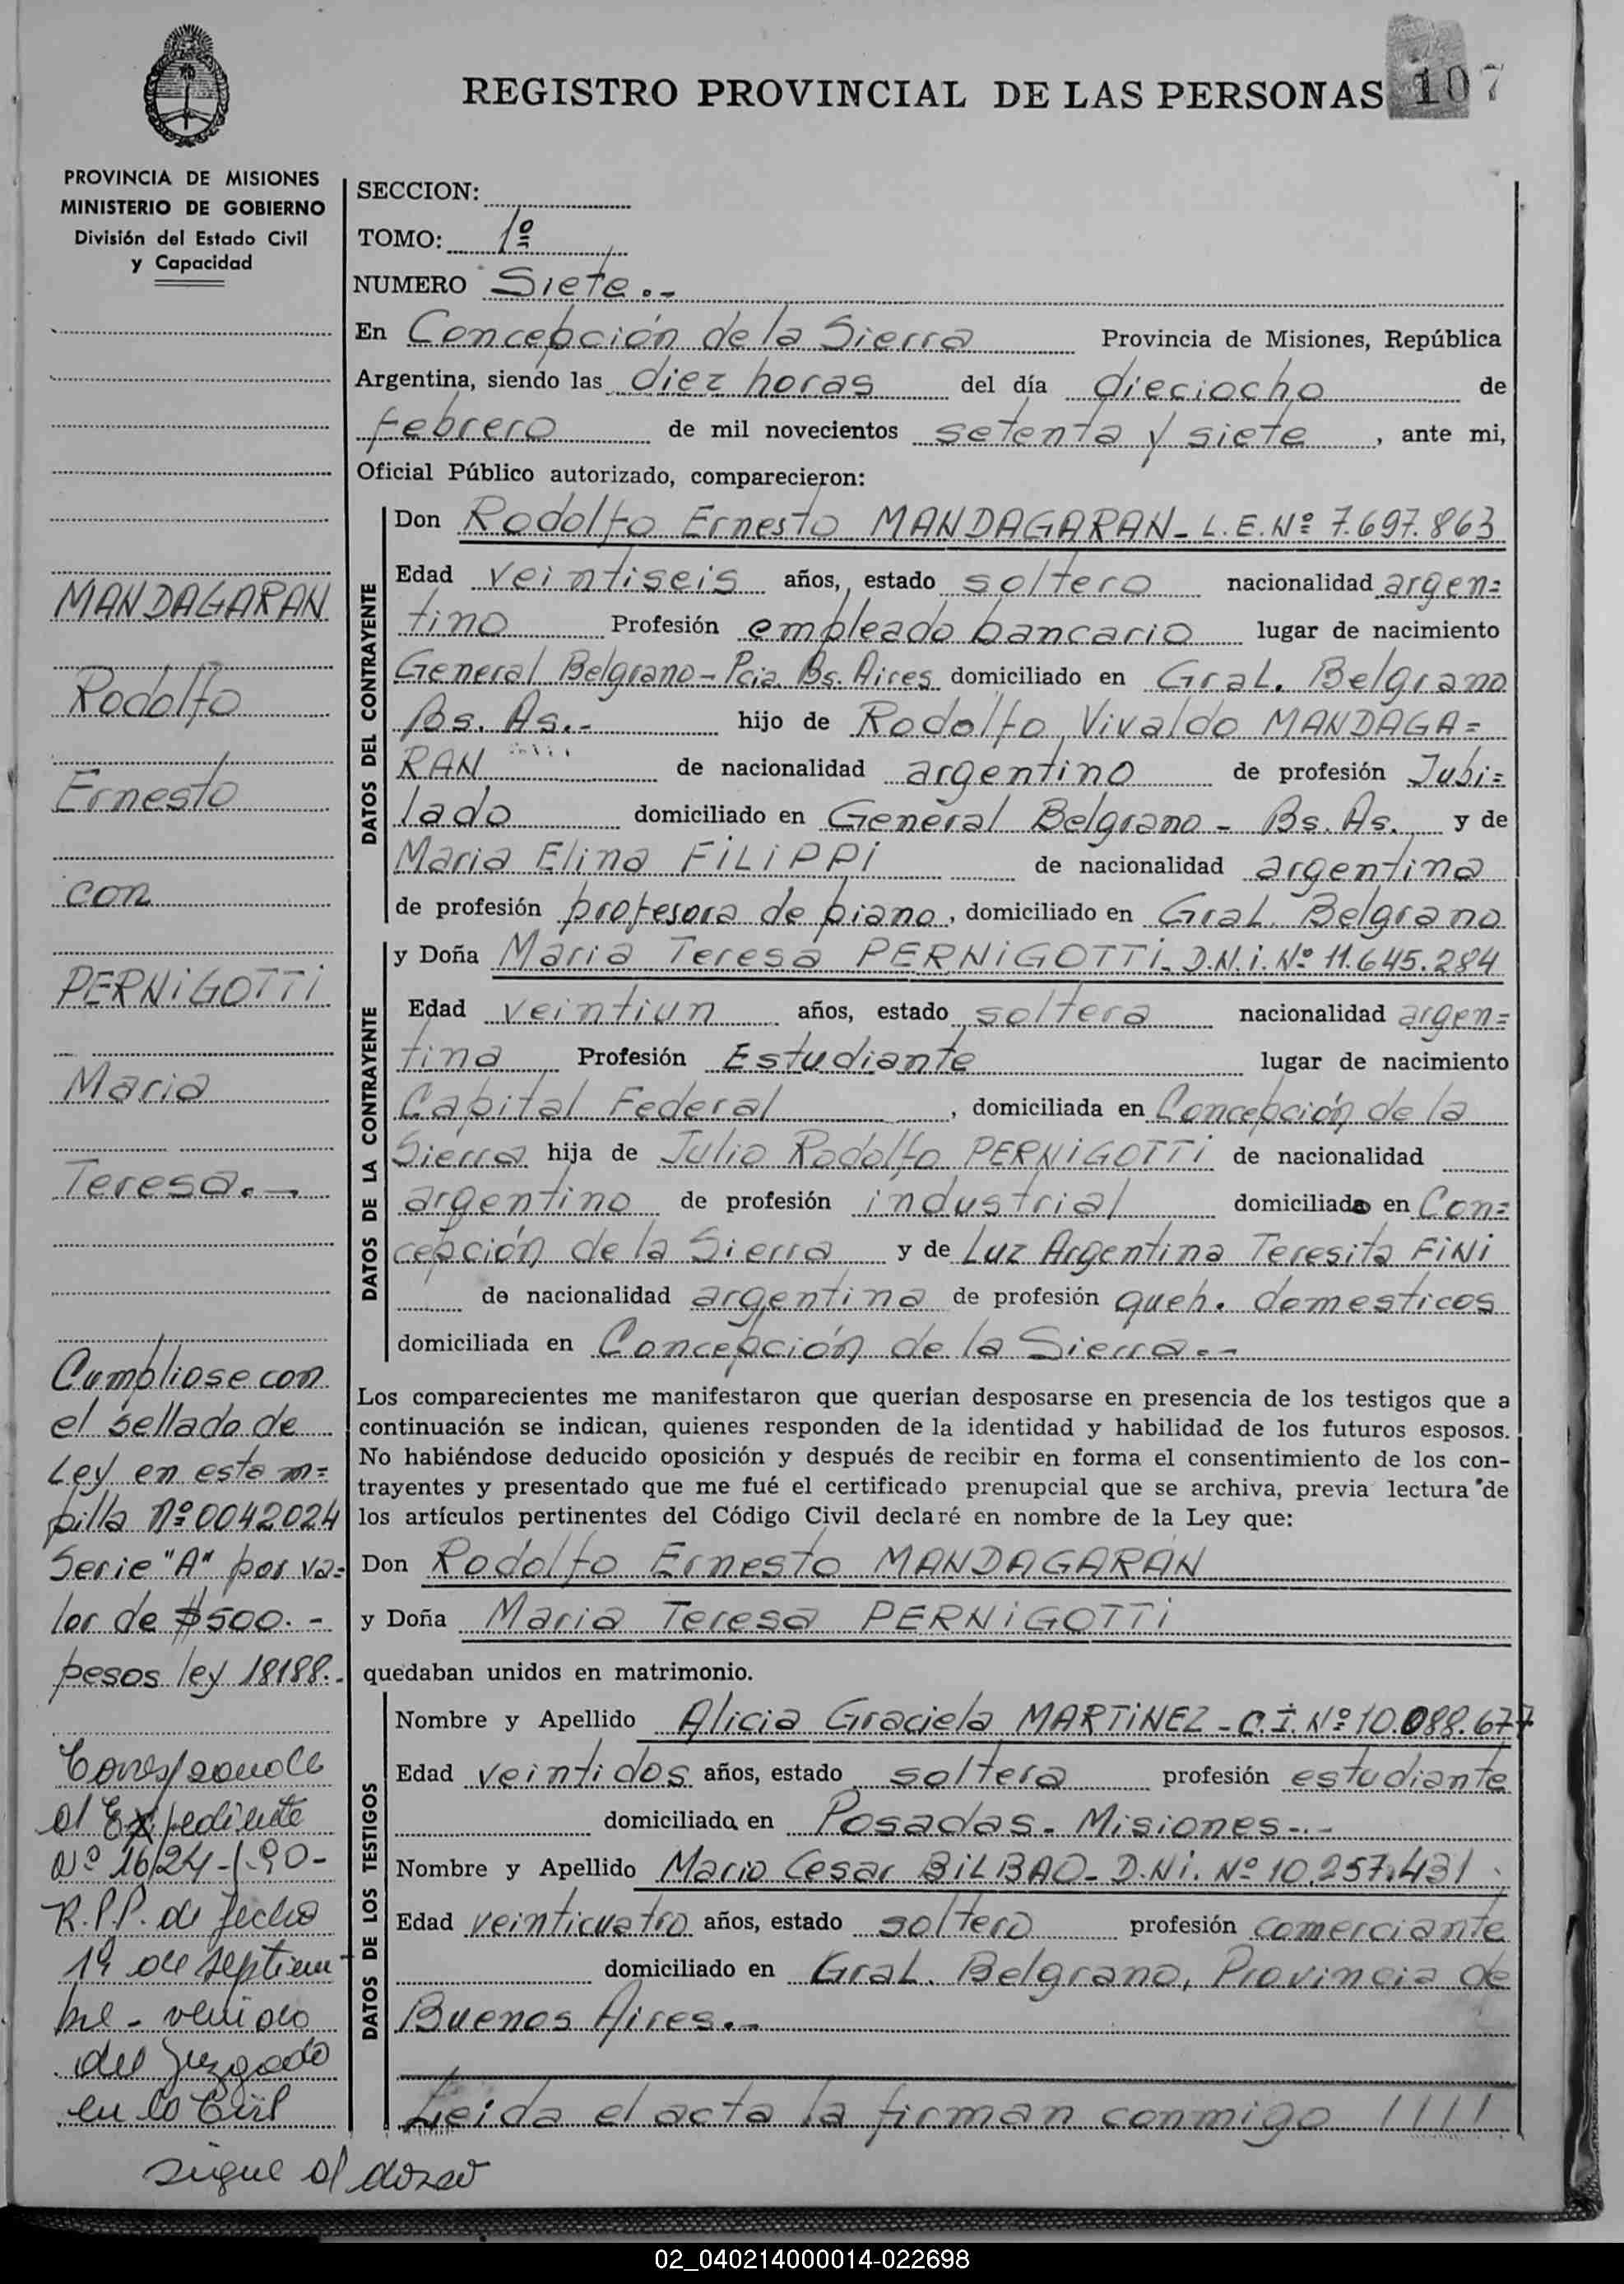 REGISTRO PROVINCIAL DE LAS PERSONAS 107
PROVINCIA DE MISIONES
MINISTERIO DE GOBIERNO
División del Estado Civil
y Capacidad
MANDAGARAN
Rodolfo
Ernesto
con
PERNIGOTTI
Maria
Teresa.-
Cumpliose con
el sellado de
Ley en estam=
pilla Nº 0042024
Serie "A" por va=
lor de $500.-
pesos ley 18188.-
Corresponde
al Expediente
Nº 1624-1-90-
R.P.P. de fecha
19 de septiem
bre - venido
del Juzgado
en lo Civil
sigue al dorso
SECCION:
TOMO: 1º
NUMERO Siete.-
En Concepción de la Sierra Provincia de Misiones, República
Argentina, siendo las diez horas del día dieciocho de
febrero de mil novecientos setenta y siete, ante mi,
Oficial Público autorizado, comparecieron:
DATOS DEL CONTRAYENTE
Don Rodolfo Ernesto MANDAGARAN- L.E.Nº 7.697.863
Edad veintiseis años, estado soltero nacionalidad argen=
tino Profesión empleado bancario lugar de nacimiento
General Belgrano - Pcia. Bs. Aires domiciliado en Gral. Belgrano
Bs. As.- hijo de Rodolfo Vivaldo MANDAGA=
RAN de nacionalidad argentino de profesión Jubi=
lado domiciliado en General Belgrano - Bs. As. y de
Maria Elina FILIPPI de nacionalidad argentina
de profesión profesora de piano, domiciliado en Gral. Belgrano
DATOS DE LA CONTRAYENTE
y Doña Maria Teresa PERNIGOTTI. D.N.i. Nº 11.645.284
Edad veintiun años, estado soltera nacionalidad argen=
tina Profesión Estudiante lugar de nacimiento
Capital Federal, domiciliada en Concepción de la
Sierra hija de Julio Rodolfo PERNIGOTTI de nacionalidad
argentino de profesión industrial domiciliado en Con=
cepción de la Sierra y de Luz Argentina Teresita FINI
de nacionalidad argentina de profesión queh. domesticos
domiciliada en Concepción de la Sierra.-
Los comparecientes me manifestaron que querían desposarse en presencia de los testigos que a
continuación se indican, quienes responden de la identidad y habilidad de los futuros esposos.
No habiéndose deducido oposición y después de recibir en forma el consentimiento de los con-
trayentes y presentado que me fué el certificado prenupcial que se archiva, previa lectura de
los artículos pertinentes del Código Civil declaré en nombre de la Ley que:
Don Rodolfo Ernesto MANDAGARAN
y Doña Maria Teresa PERNIGOTTI
quedaban unidos en matrimonio.
DATOS DE LOS TESTIGOS
Nombre y Apellido Alicia Graciela MARTINEZ - C.I. Nº 10.088.677
Edad veintidos años, estado soltera profesión estudiante
domiciliada en Posadas - Misiones.-
Nombre y Apellido Mario Cesar BILBAO- D.Ni. Nº 10.257.431
Edad veinticuatro años, estado soltero profesión comerciante
domiciliado en Gral. Belgrano, Provincia de
Buenos Aires.-
Leida el acta la firman conmigo ////
02_040214000014-022698